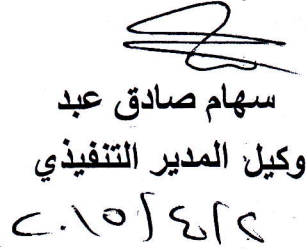 سهام صادق عبد
وكيل المدير التنفيذي
٢٠١٥/٤/٢